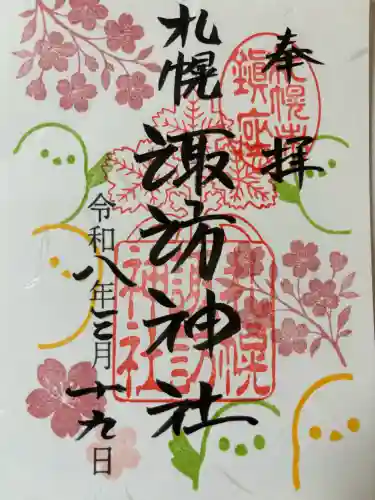 奉拝
札幌
諏訪神社
令和八年三月十九日
札幌
諏訪
神社